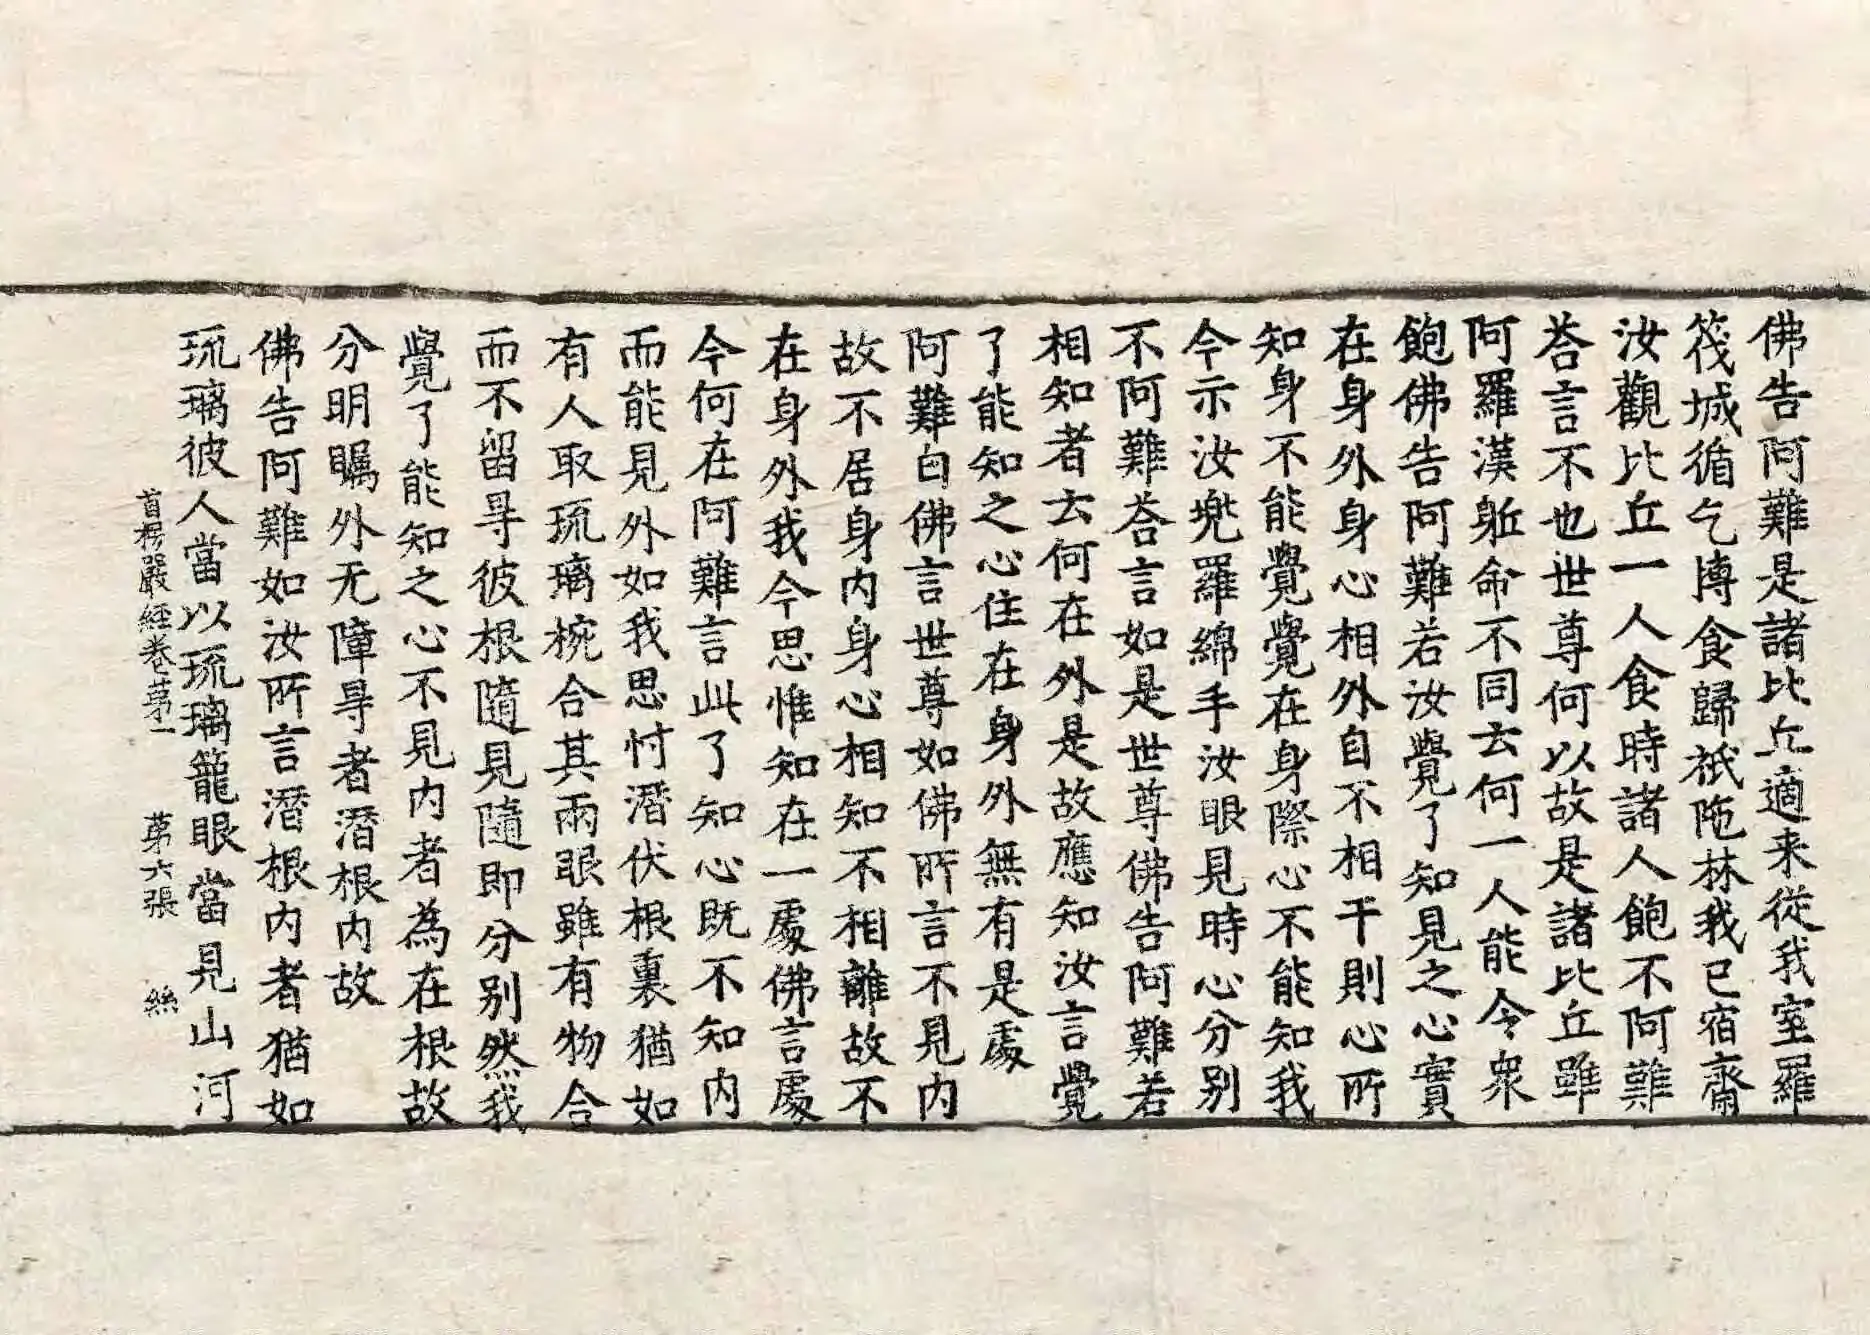 佛告阿難是諸比丘適来從我室羅
筏城循乞摶食歸祇陁林我已宿齋
汝觀比丘一人食時諸人飽不阿難
荅言不也世尊何以故是諸比丘雖
阿羅漢軀命不同云何一人能令衆
飽佛告阿難若汝覺了知見之心實
在身外身心相外自不相干則心所
知身不能覺覺在身際心不能知我
今示汝兠羅綿手汝眼見時心分别
不阿難荅言如是世尊佛告阿難若
相知者云何在外是故應知汝言覺
了能知之心住在身外無有是處
阿難白佛言世尊如佛所言不見内
故不居身内身心相知不相離故不
在身外我今思惟知在一處佛言處
今何在阿難言此了知心既不知内
而能見外如我思忖潛伏根裏猶如
有人取琉璃椀合其兩眼雖有物合
而不留㝵彼根隨見隨即分别然我
覺了能知之心不見内者為在根故
分明矚外无障㝵者潛根内故
佛告阿難如汝所言潛根内者猶如
琉璃彼人當以琉璃籠眼當見山河
首楞嚴經卷苐一　苐六張　絲